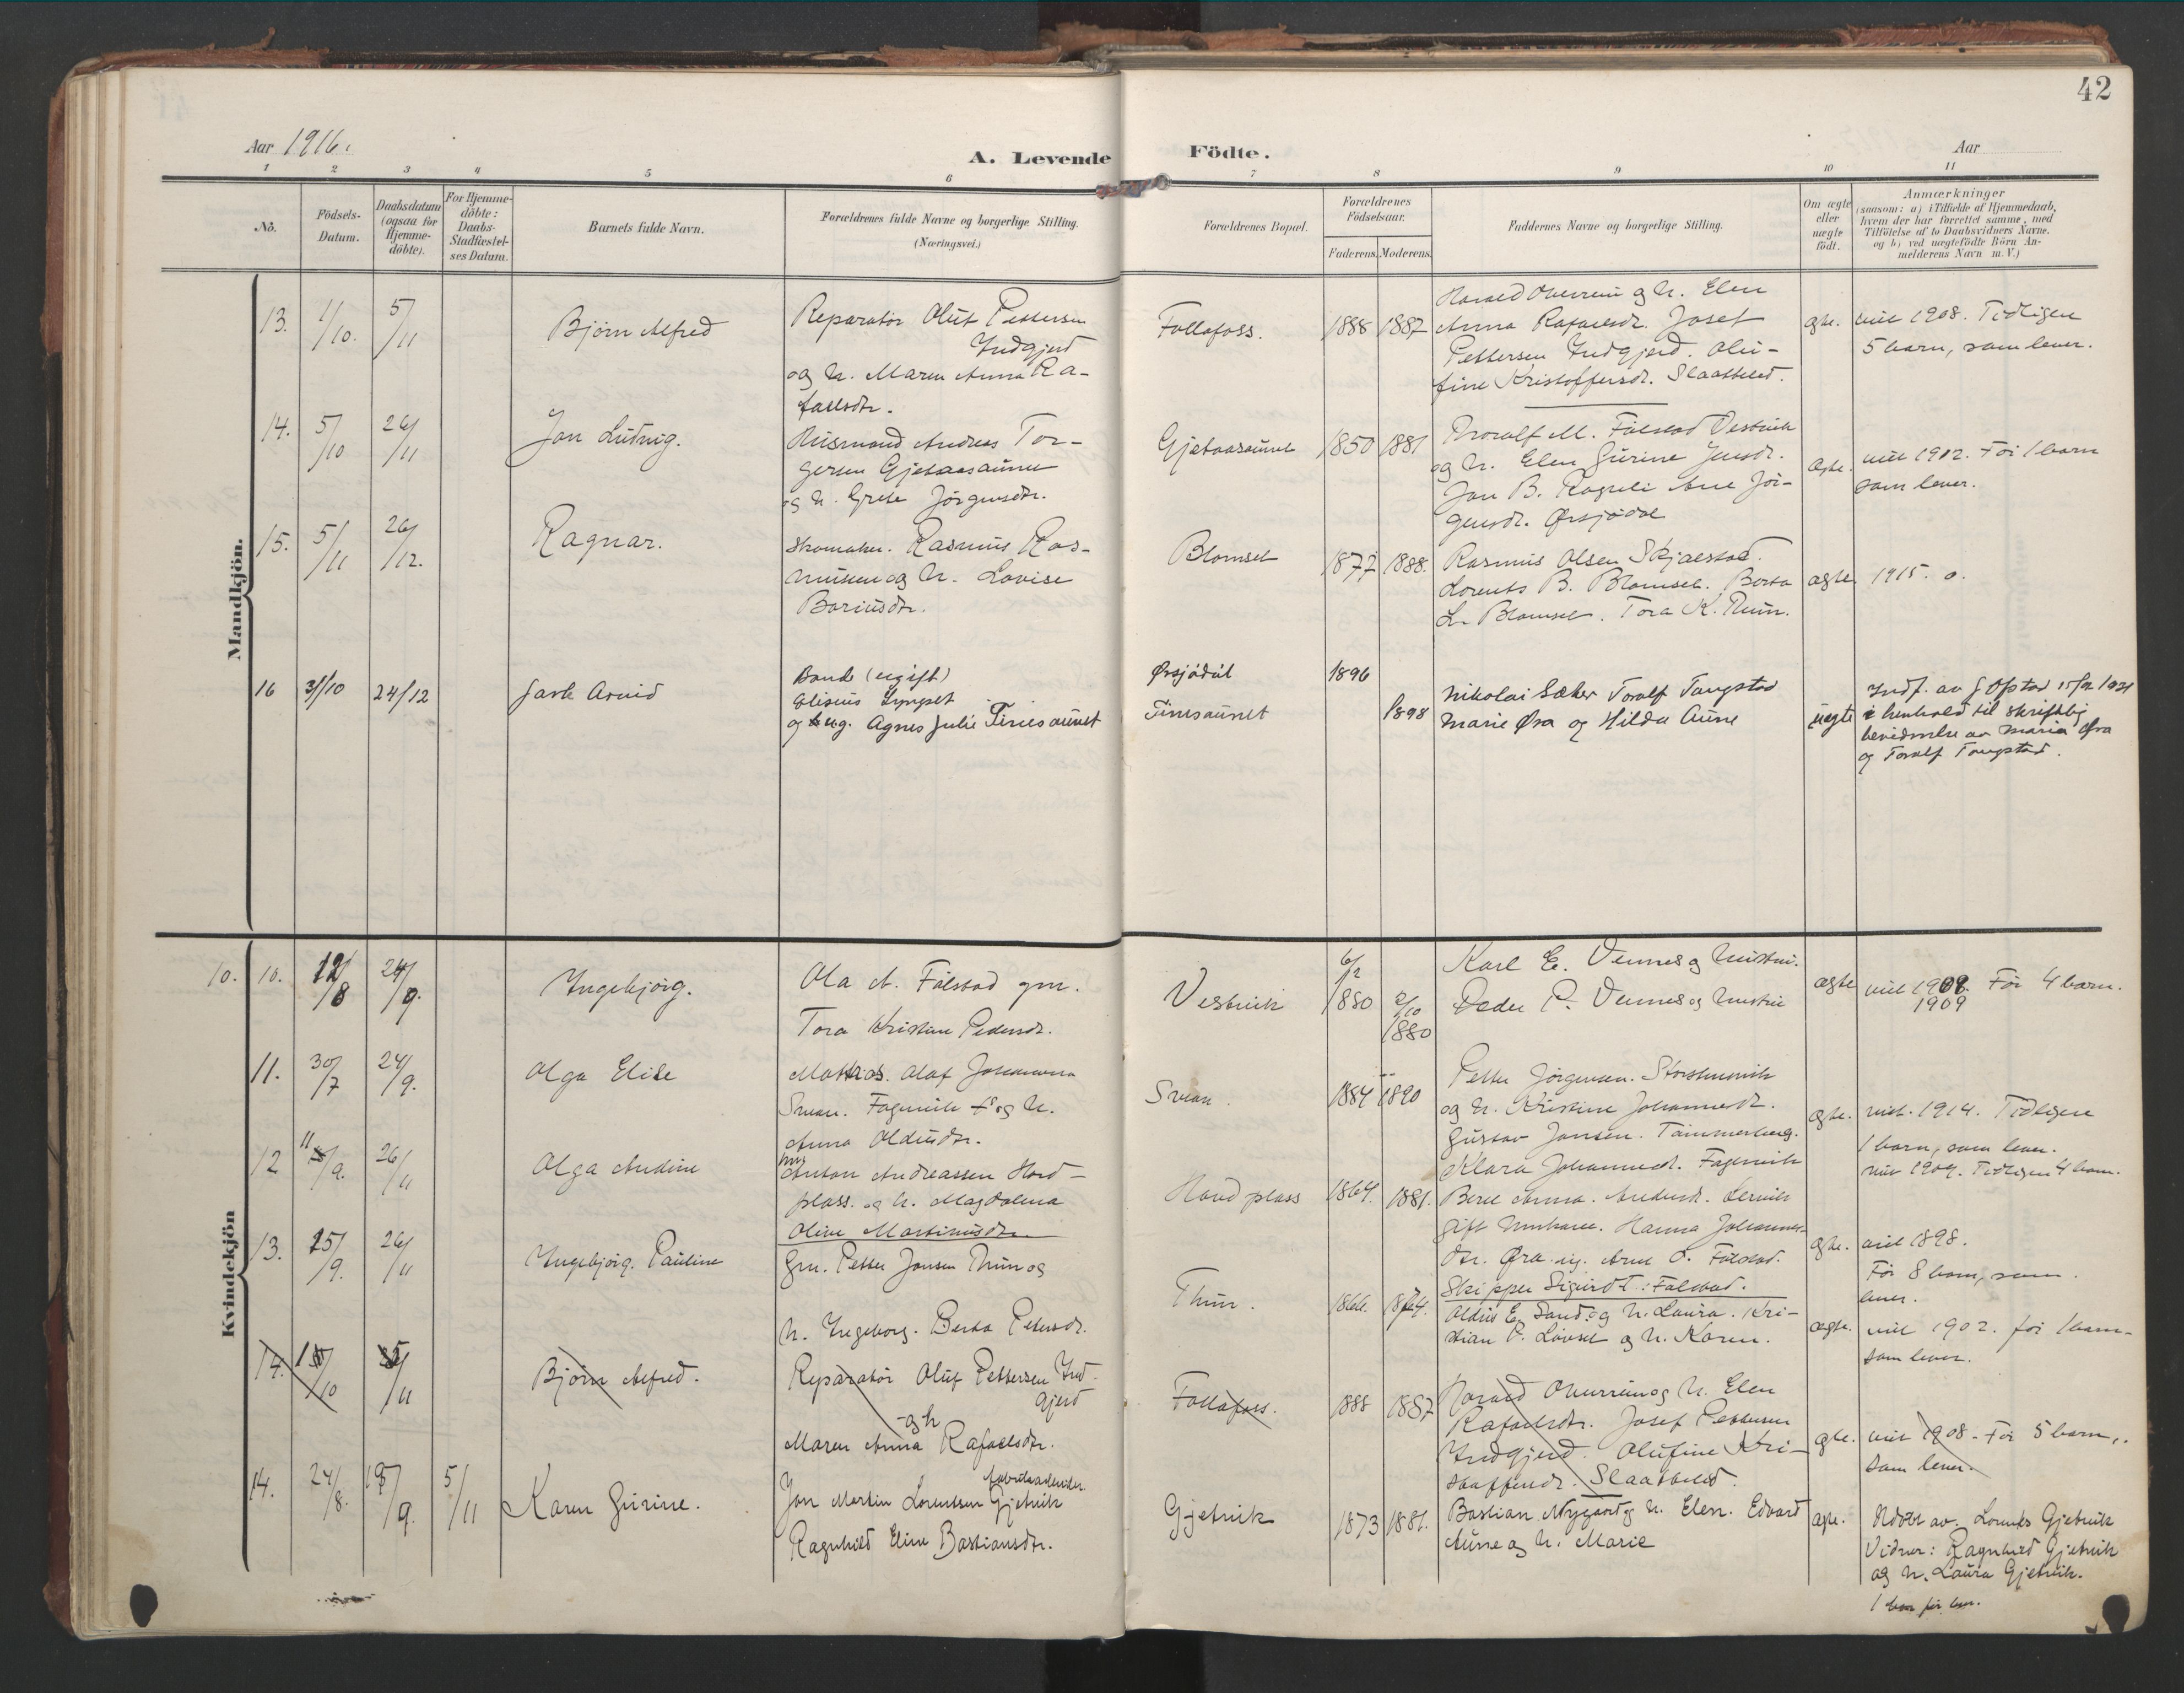 42
Aar 1916.
A. Levende Födte.
Aar
1 2 3 4 5 6 7 8 9 10 11
No.
Födsels-
Datum.
Daabsdatum
(ogsaa for
Hjemme-
döbte).
For Hjemme-
döbte:
Daabs-
Stadfæstel-
ses Datum.
Barnets fulde Navn.
Forældrenes fulde Navne og borgerlige Stilling.
(Næringsvei.)
Forældrenes Bopæl.
Forældrenes
Födselsaar.
Faderens. Moderens.
Faddernes Navne og borgerlige Stilling.
Om ægte
eller
uægte
födt.
Anmærkninger
(saasom: a) i Tilfælde af Hjemmedaab,
hvem der har forrettet samme, med
Tilföielse af to Daabsvidners Navne.
og b) ved uægtefödte Börn An-
melderens Navn m. V.)
Mandkjön.
13. 1/10. 5/11 Björn Alfred
Reparatör Oluf Pettersen
Indgjerd
og h. Maren Anna Ra-
faelsdtr.
Follafoss. 1888 1887
Harald Overrein og h. Elen
Anna Rafaelsdr. Josef
Pettersen Indgjerd. Olu-
fine Kristoffersdr. Slaatbled.
gte. viet 1908. Tidligere
5 barn, som lever.
14. 5/10 26/11 Jon Ludvig.
Husmand Andreas Tor-
gersen Gjetaasaunet
og h. Grete Jörgensdtr.
Gjetaasaunet 1850 1881
Torolf M. Følstad Vestvik
og h. Elen Gurine Jensdr.
Jon B. Ane Jör-
gensdr. Ørsjödal
ægte. viet 1912. Før 1 barn
som lever.
15. 5/11 26/12. Ragnar.
Skomaker. Rasmus Ras-
mussen og h. Lovise
Bariusdtr.
Blomset 1877 1888.
Rasmus Olsen Skjaestad.
Lorents B. Blomset. Berta
L. Blomset. Tora K. Thun.
ægte 1915. 0.
16 31/10 24/12 Jarle Arvid
Bonde (ugift)
Elisius Lyngset
og ug. Agnes Julie Tinesaunet
Ørsjödal 1896
Tinesaunet 1898
Nikolai Sæter Toralf Tangstad
Marie Øra og Hilda Aune
uegte
Indf. av J Opstad 15/2 1921
i henhold til skriftlig
bevidnelse av Maria Øra
og Toralf Tangstad.
Kvindekjön
10. 10. 12/8 24/9. Ingebjörg.
Ola A. Følstad gm.
Tora Kristine Pedersdr.
Vestvik 6/12 1880 2/10 1880
Karl E. Vennes og hustru.
Peder P. Vennes og hustru
ægte viet 1908. Før 4 barn.
1909
11. 30/7 24/9. Olga Elise
Mathias Olaf Johannesen
Svean. Fagervik og h.
Anna Oldusdtr.
Svean. 1884 1890
Petter Jörgensen.
og h. Kristine Johannesdr.
Gustav Jansen. Tømmerberg.
Klara Johannesdr. Fagervik
ægte. viet. 1914. Tidligere
1 barn, som lever.
12 11/9. 26/11 Olga Andine
Anton Andreassen Hond-
plass. og h. Magdalena
Oline Martinusdtr.
Hondplass 1864. 1881.
Beret Anna. Andersdr. Lervik
gift Hanna Johannes-
dtr. Øra ug. Arne O. Følstad.
Skipper Sigurd T. Følstad.
gte. viet 1904. Tidligere 4 barn.
13. 25/9. 26/11 Ingebjörg. Pauline
Gm. Petter Jansen Thun og
h. Ingeborg. Berta Petersdr.
Thun. 1866. 1874.
Oldus E. Sand og h. Laura. Kri-
stian P. Lövset og h. Karen.
viet 1898.
Før 8 barn, som
lever.
ægte. viet 1902. før 1 barn
som lever.
14. 1/10 5/11 Björn Alfred.
Reparatör Oluf Pettersen Ind-
gjerd
og h
Maren Anna Rafaelsdtr.
Follafoss. 1888 1887
Harald Overrein og h. Elen
Rafaelsdtr. Josef Pettersen
Indgjerd. Olufine Kri-
stoffersdr. Slaatbled.
gte. viet 1908. Før 5 barn,
som lever.
14. 24/8. 19/9 5/11 Karen Gurine.
fabrikarbeider
Jon Martin Lorentsen Gjetvik
Ragnhild Eline Bastiansdtr.
Gjetvik 1873 1881.
Bastian Nygaard og h. Elen. Edvard
Aune og h. Marie
ægte. Hdöbt av. Lorents Gjetvik
Vidner: Ragnhild Gjetvik
og h. Laura Gjetvik.
1 barn før lever.